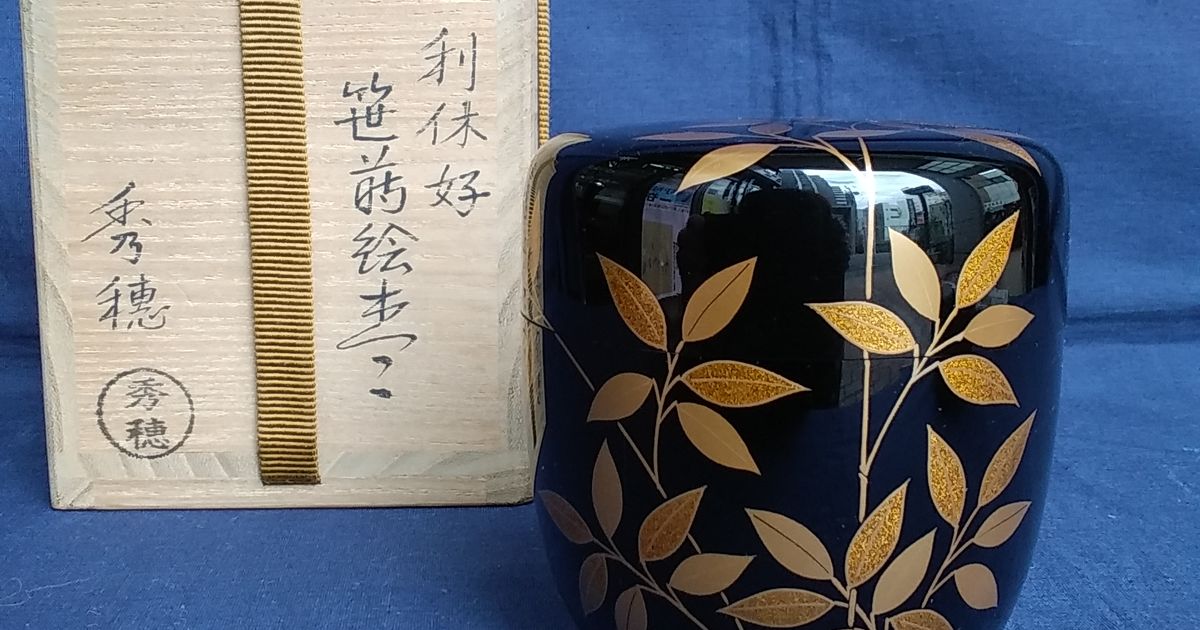 利休好
笹蒔絵棗
秀穂
秀穂